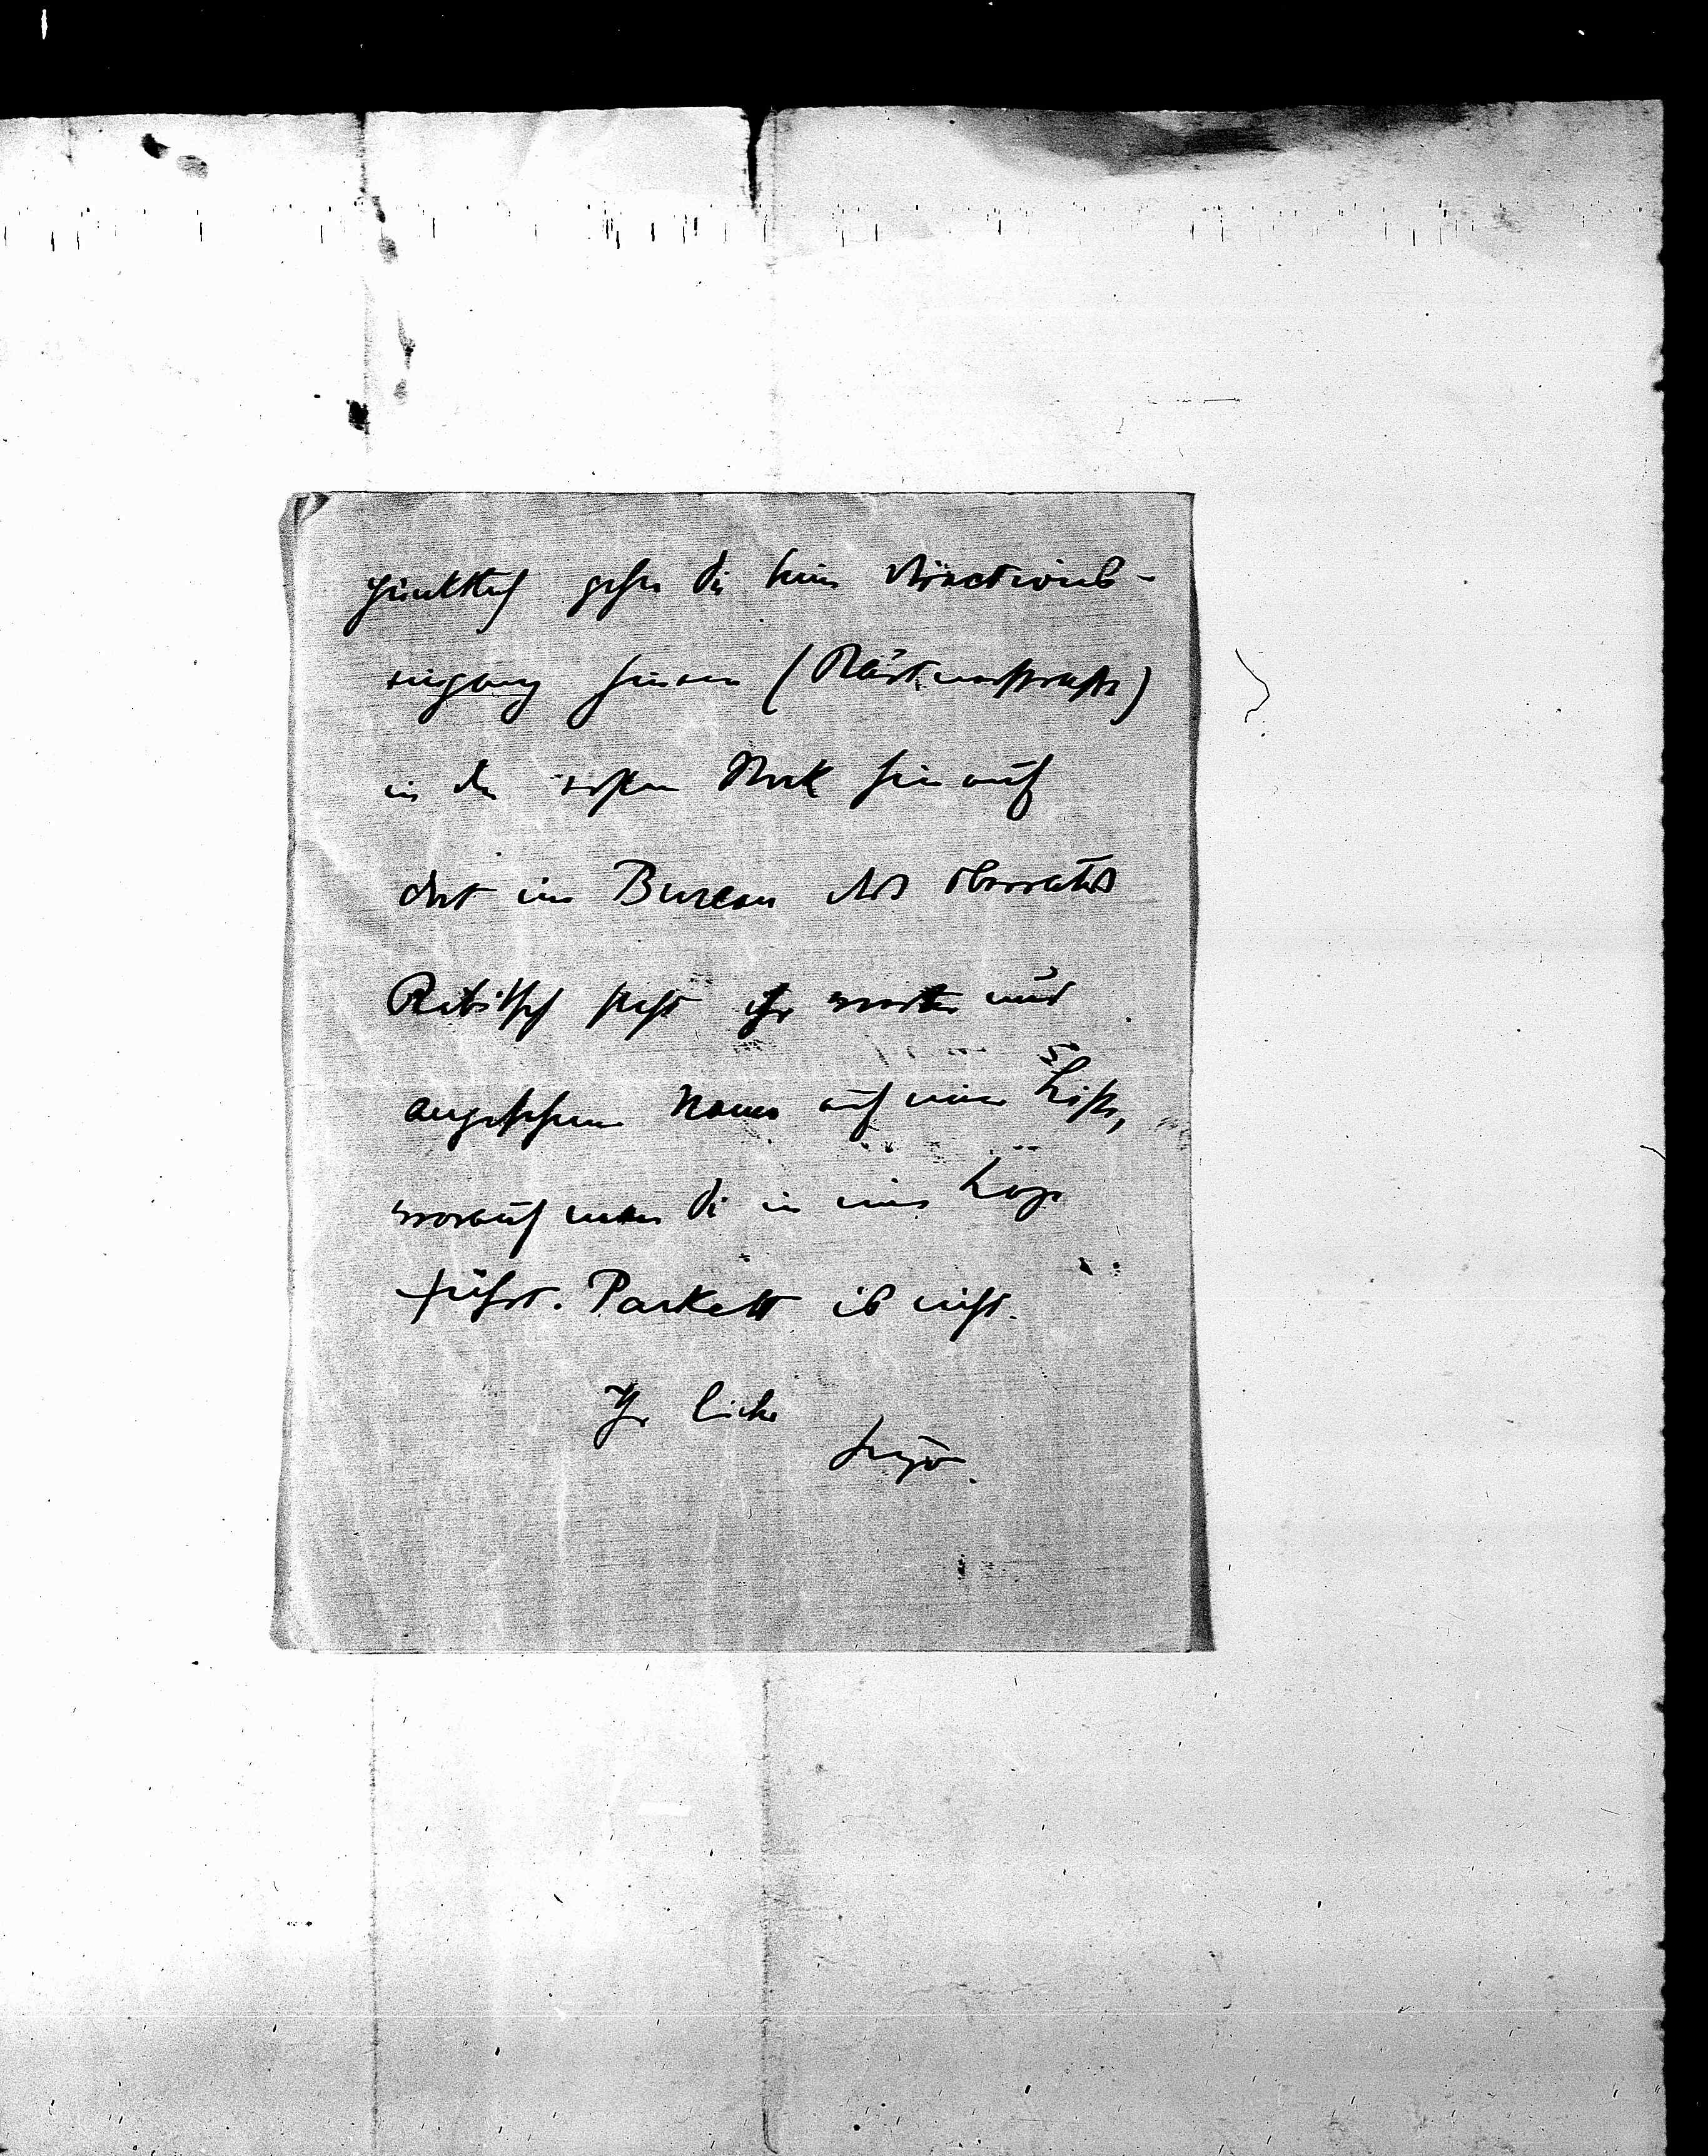 pünktlich gehen Sie beim Directions-
eingang hinein (Kärtnerstraße)
in den ersten Stock hinauf
dort im Bureau des Oberrates
steht Ihr werter und
angesehener Name auf einer Liste,
worauf man Sie in eine Loge
führt. Parkett is nicht.
Ihr lieber